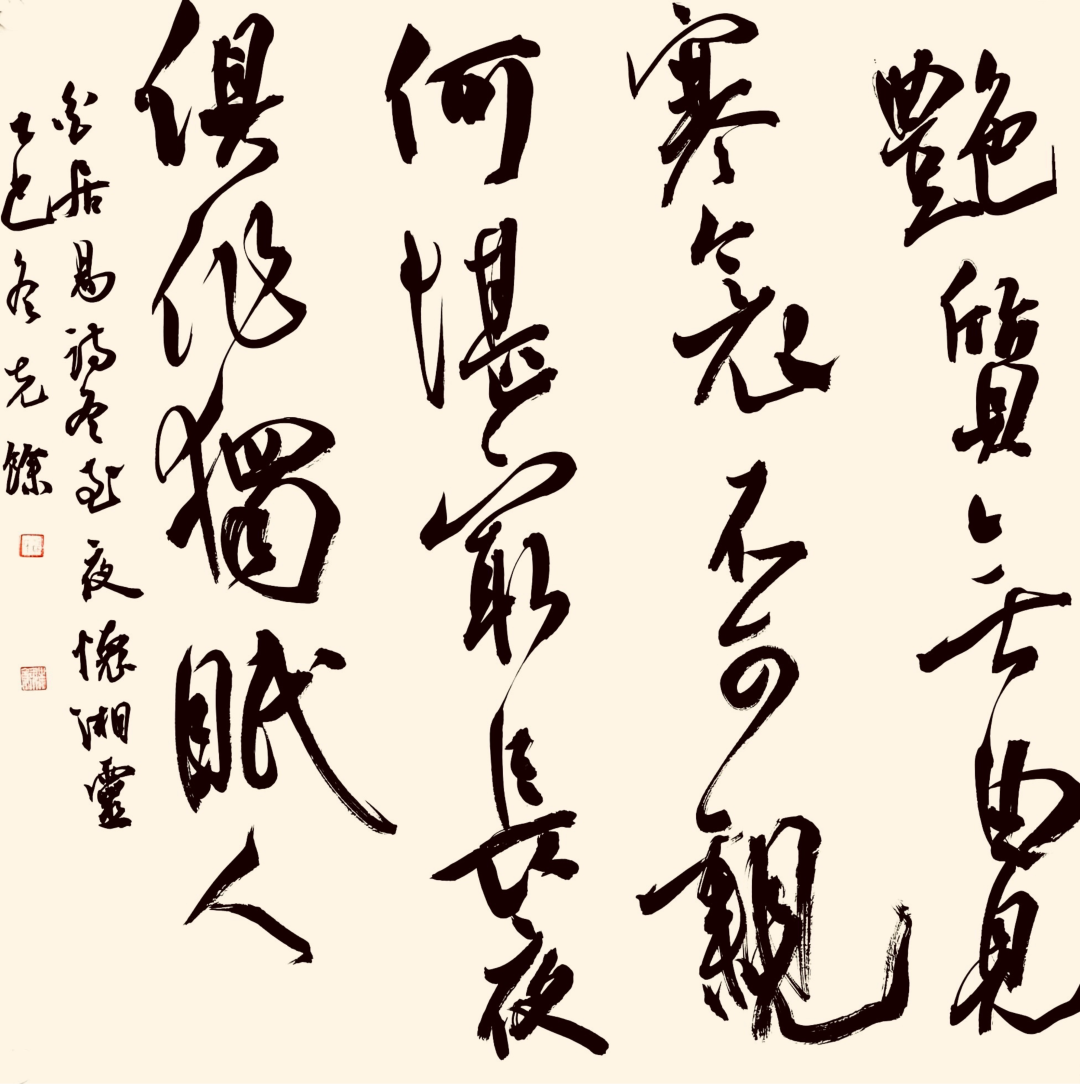 艷質無由見
寒衾不可親
何堪最長夜
俱作獨眠人
白居易詩冬至夜懷湘靈
乙巳冬克